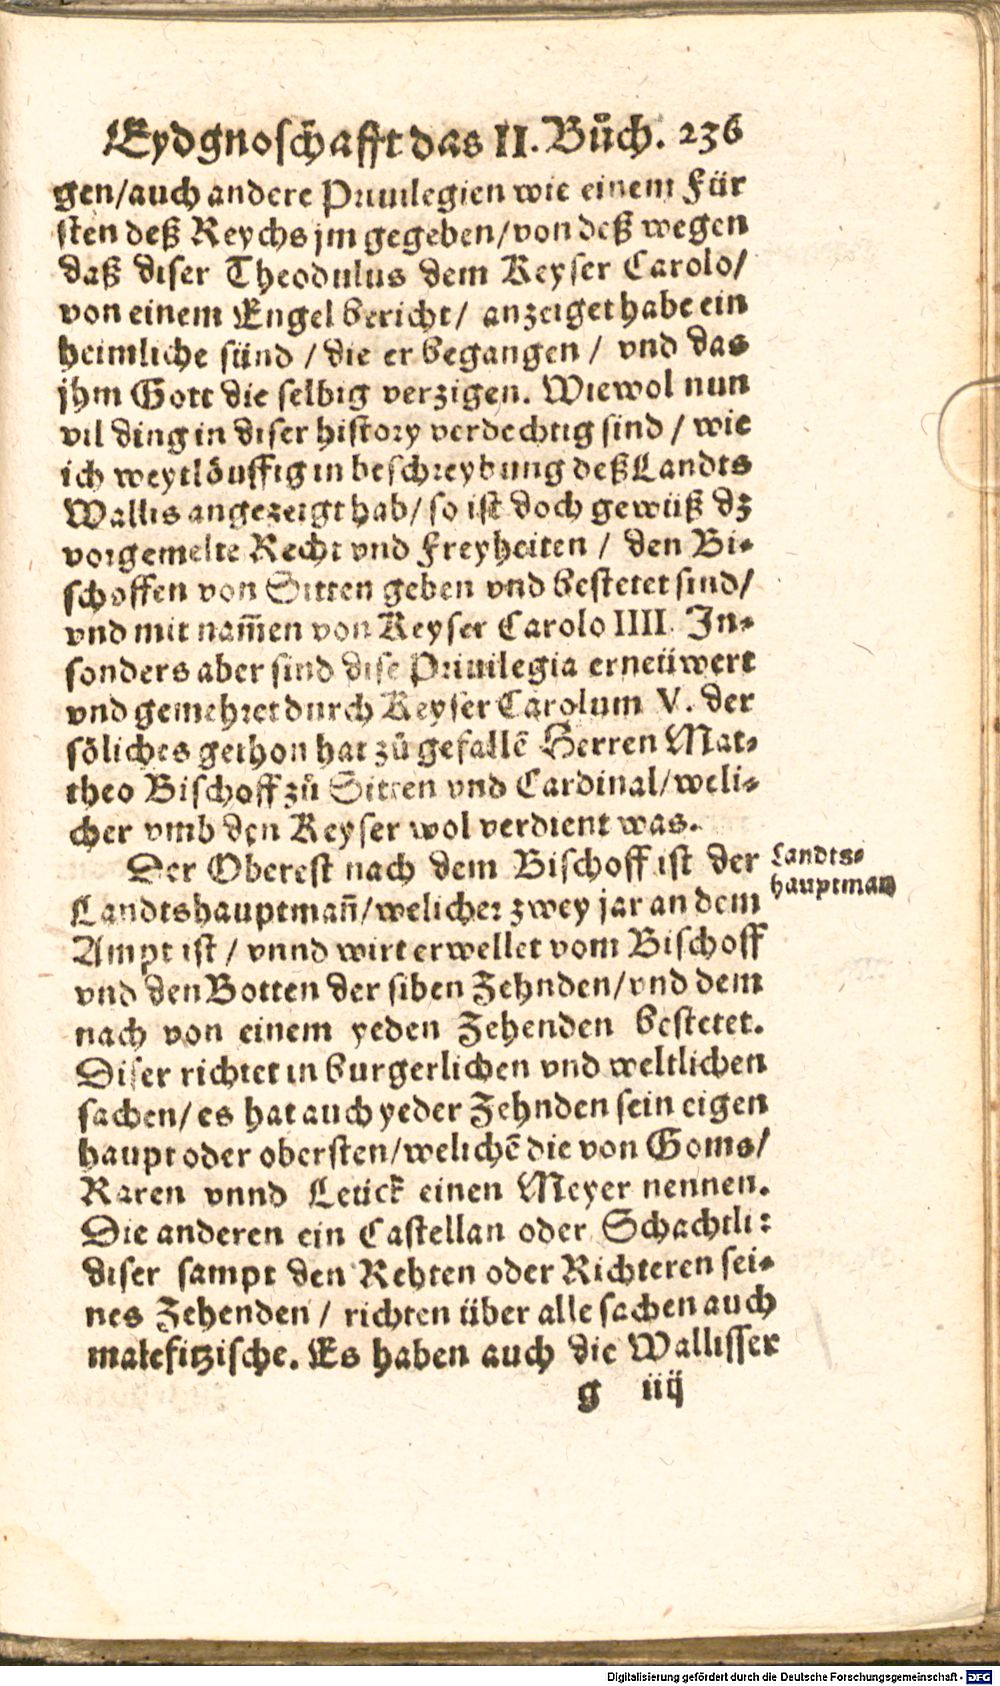 Eydgnoschafft das II. Bůch. 236
gen/auch andere Priuilegien wie einem Für
sten deß Reychs jm gegeben/von deß wegen
daß diser Theodulus dem Keyser Carolo/
von einem Engel bericht/ anzeiget habe ein
heimliche sünd / die er begangen / vnd das
jhm Gott die selbig verzigen. Wiewol nun
vil ding in diser history verdechtig sind / wie
ich weytlöuffig in beschreybung deß Landts
Wallis angezeigt hab/ so ist doch gewüß dz
vorgemelte Recht vnd Freyheiten / den Bi-
schoffen von Sitten geben vnd bestetet sind/
vnd mit nam̃en von Keyser Carolo IIII. In-
sonders aber sind dise Priuilegia erneüwert
vnd gemehret durch Keyser Carolum V. der
söliches gethon hat zů gefallẽ Herren Mat-
theo Bischoff zů Sitten vnd Cardinal/weli-
cher vmb den Keyser wol verdient was.
Der Oberest nach dem Bischoff ist der
Landtshauptmañ/welicher zwey jar an dem
Ampt ist / vnnd wirt erwellet vom Bischoff
vnd den Botten der siben Zehnden/vnd dem
nach von einem yeden Zehenden bestetet.
Diser richtet in burgerlichen vnd weltlichen
sachen/ es hat auch yeder Zehnden sein eigen
haupt oder obersten/welichẽ die von Goms/
Raren vnnd Leück einen Meyer nennen.
Die anderen ein Castellan oder Schachtli:
diser sampt den Rehten oder Richteren sei-
nes Zehenden / richten über alle sachen auch
malefitzische. Es haben auch die Wallisser
g iiij
Landts-
hauptman
Digitalisierung gefördert durch die Deutsche Forschungsgemeinschaft - DFG